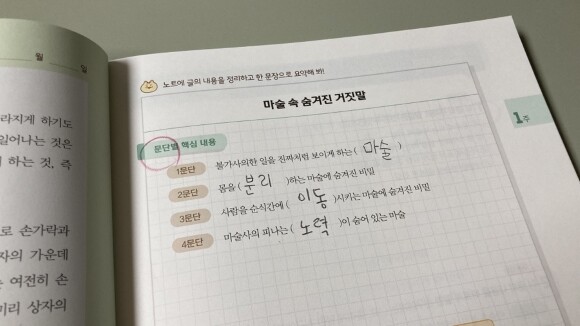 월 일
라지게 하기도
일어나는 것은
하는 것, 즉
로 손가락과
자의 가운데
는 여전히 손
미리 상자의
노트에 글의 내용을 정리하고 한 문장으로 요약해 봐!
마술 속 숨겨진 거짓말
1주
문단별 핵심 내용
1문단 불가사의한 일을 진짜처럼 보이게 하는 ( 마술 )
2문단 몸을 ( 분리 )하는 마술에 숨겨진 비밀
3문단 사람을 순식간에 ( 이동 )시키는 마술에 숨겨진 비밀
4문단 마술사의 피나는 ( 노력 )이 숨어 있는 마술